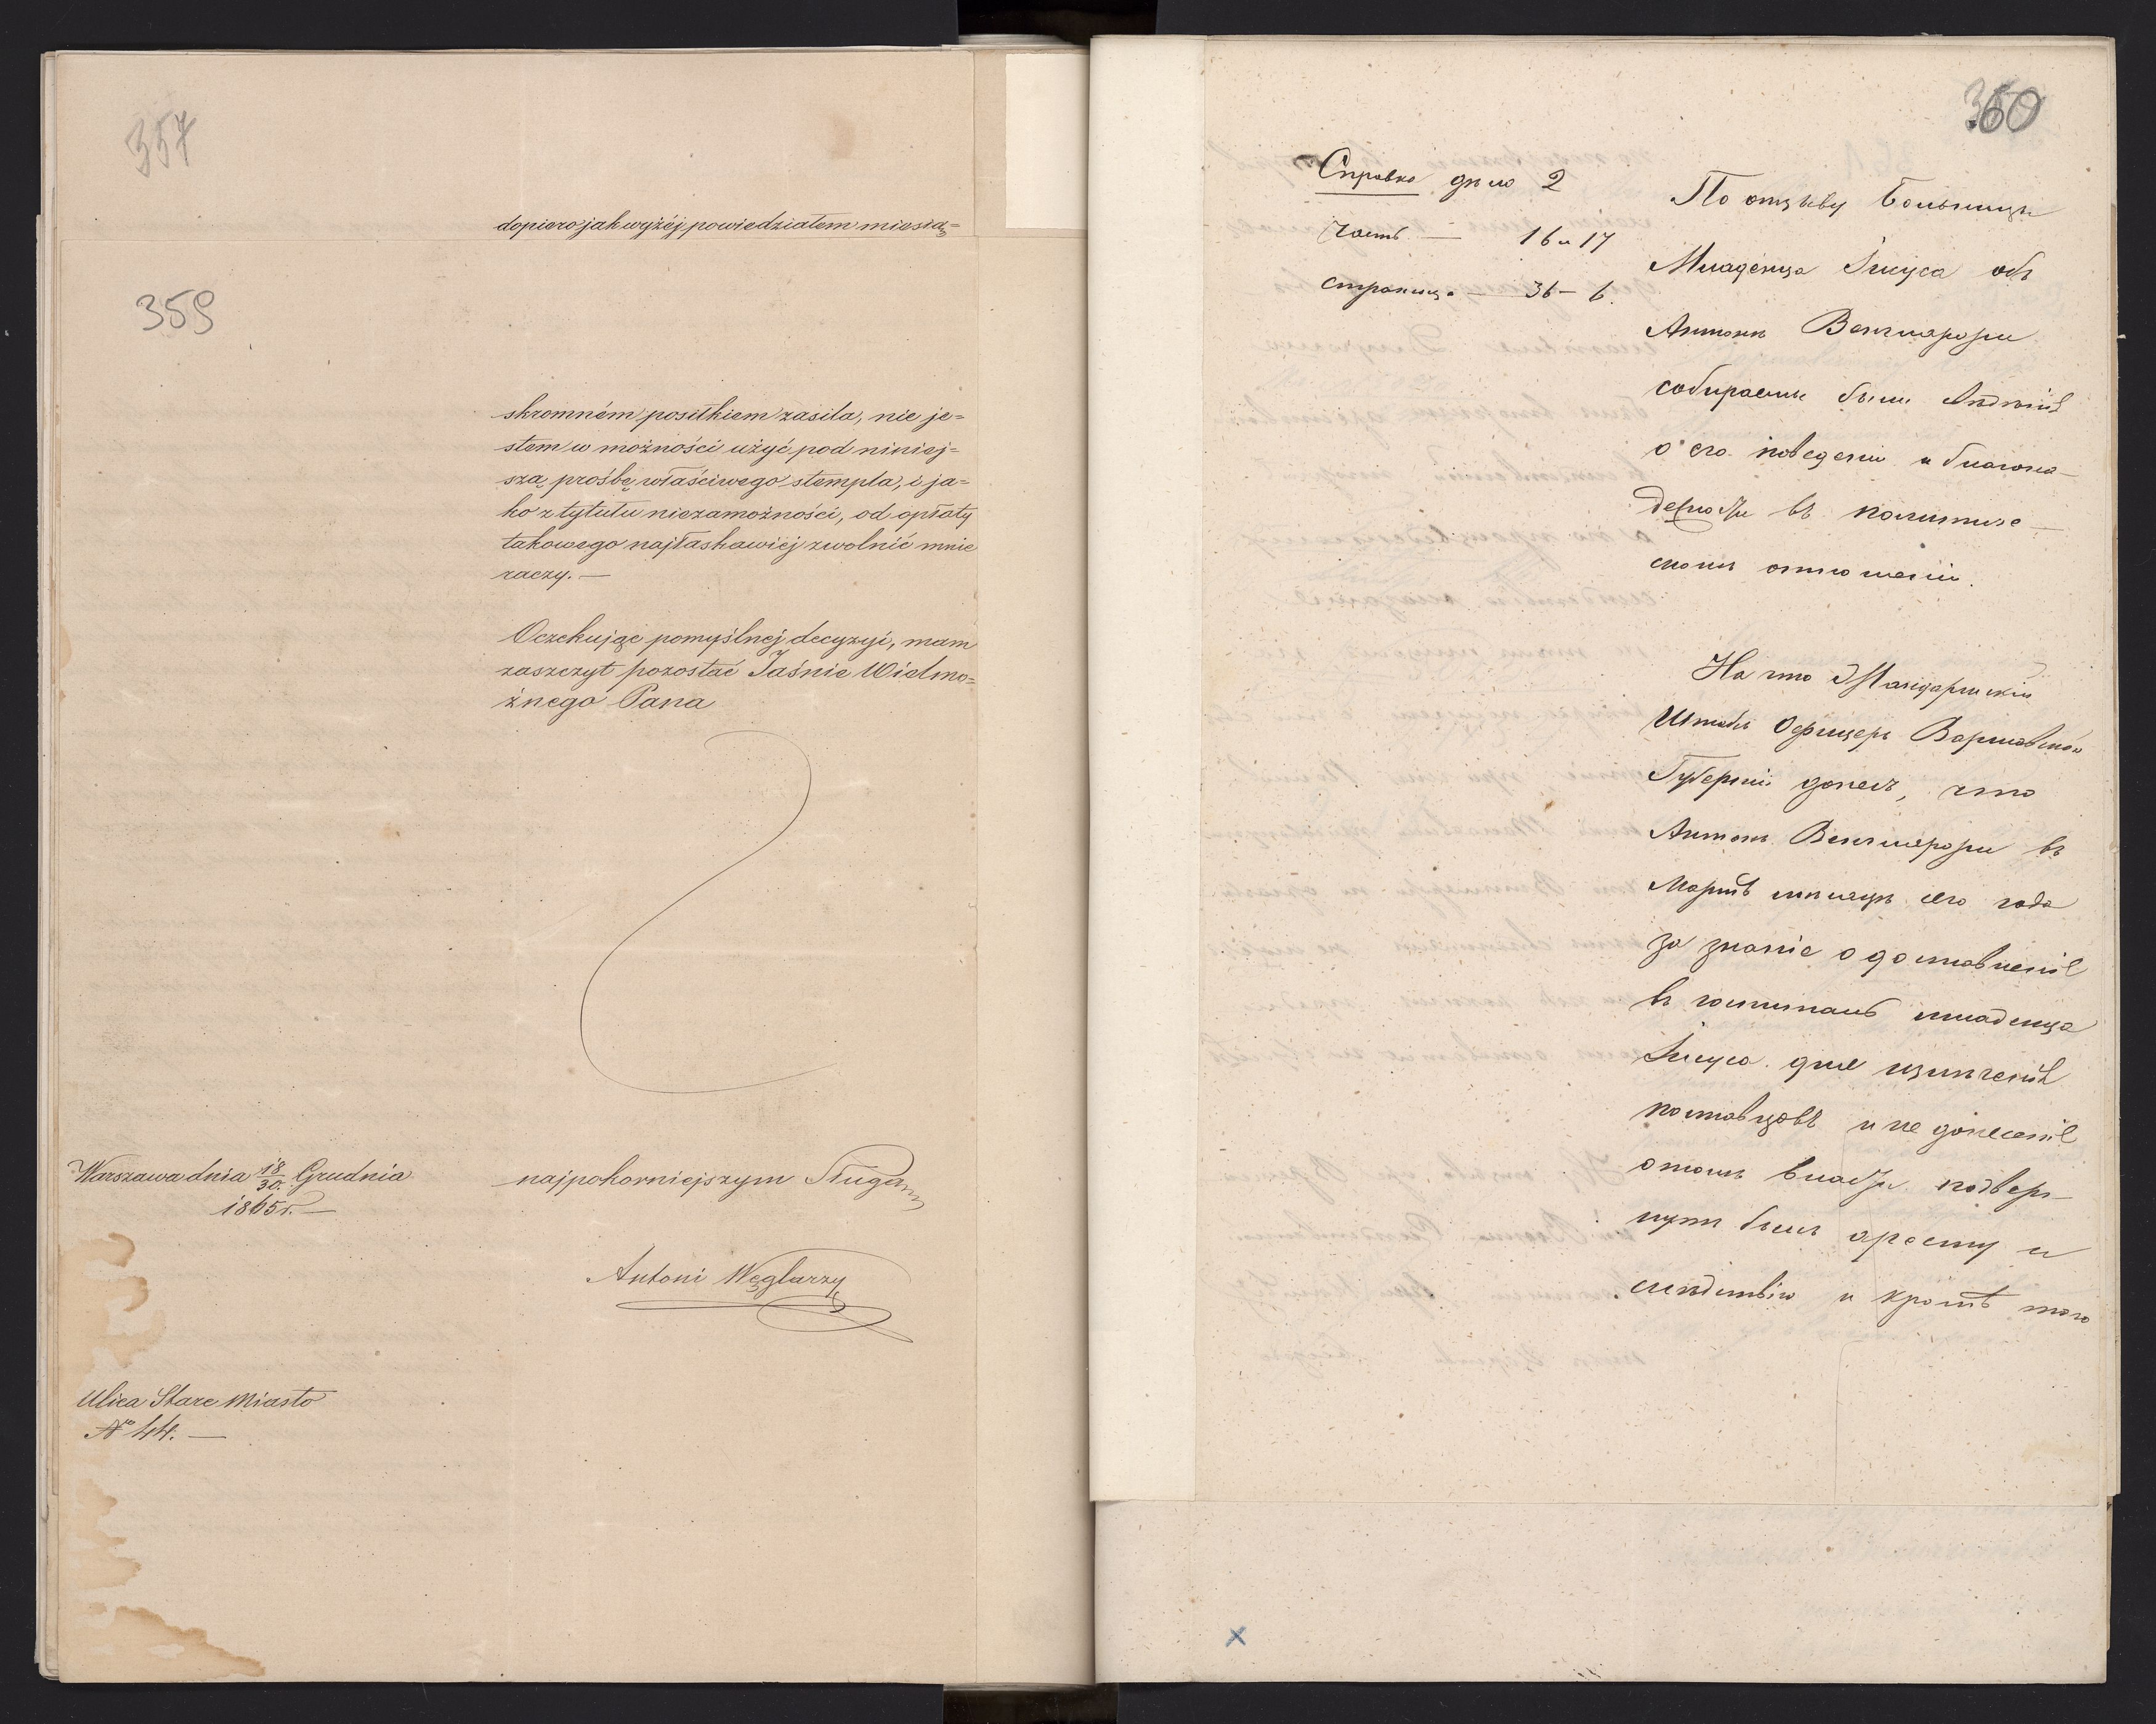 357
dopiero jak wyżéj powiedziałem miesią=
359
skromném posiłkiem zasila, nie je=
stem w możności użyć pod niniej=
szą prośbę właściwego stempla, i ja=
ko z tytułu niezamożności, od opłaty
takowego najłaskawiej zwolnić mnie
raczy. —
Oczekując pomyślnej decyzyi, mam
zaszczyt pozostać Jaśnie Wielmo=
żnego Pana
Warszawa dnia 18/30. Grudnia
1865 r. —
najpokorniejszym Sługą
Antoni Węglarzy
Ulica Stare Miasto
No 44. —
360
Справка дѣло 2
часть — 16 и 17
страница — 36 – 6.
По отзыву Больницы
Младенца Іисуса объ
Антонѣ Венгляржи
собираемы были свѣдѣнія
о его поведеніи и благона-
дежности въ политиче-
скомъ отношеніи.
На что Жандармскій
Штабъ Офицеръ Варшавской
Губерніи донесъ, что
Антонъ Венгляржи въ
Мартѣ мѣсяцѣ сего года
за знаніе о доставленіи
въ госпиталь младенца
Іисуса для излеченія
повстанцовъ и не донесеніе
о томъ власти подверг-
нутъ былъ аресту и
слѣдствію и кромѣ того